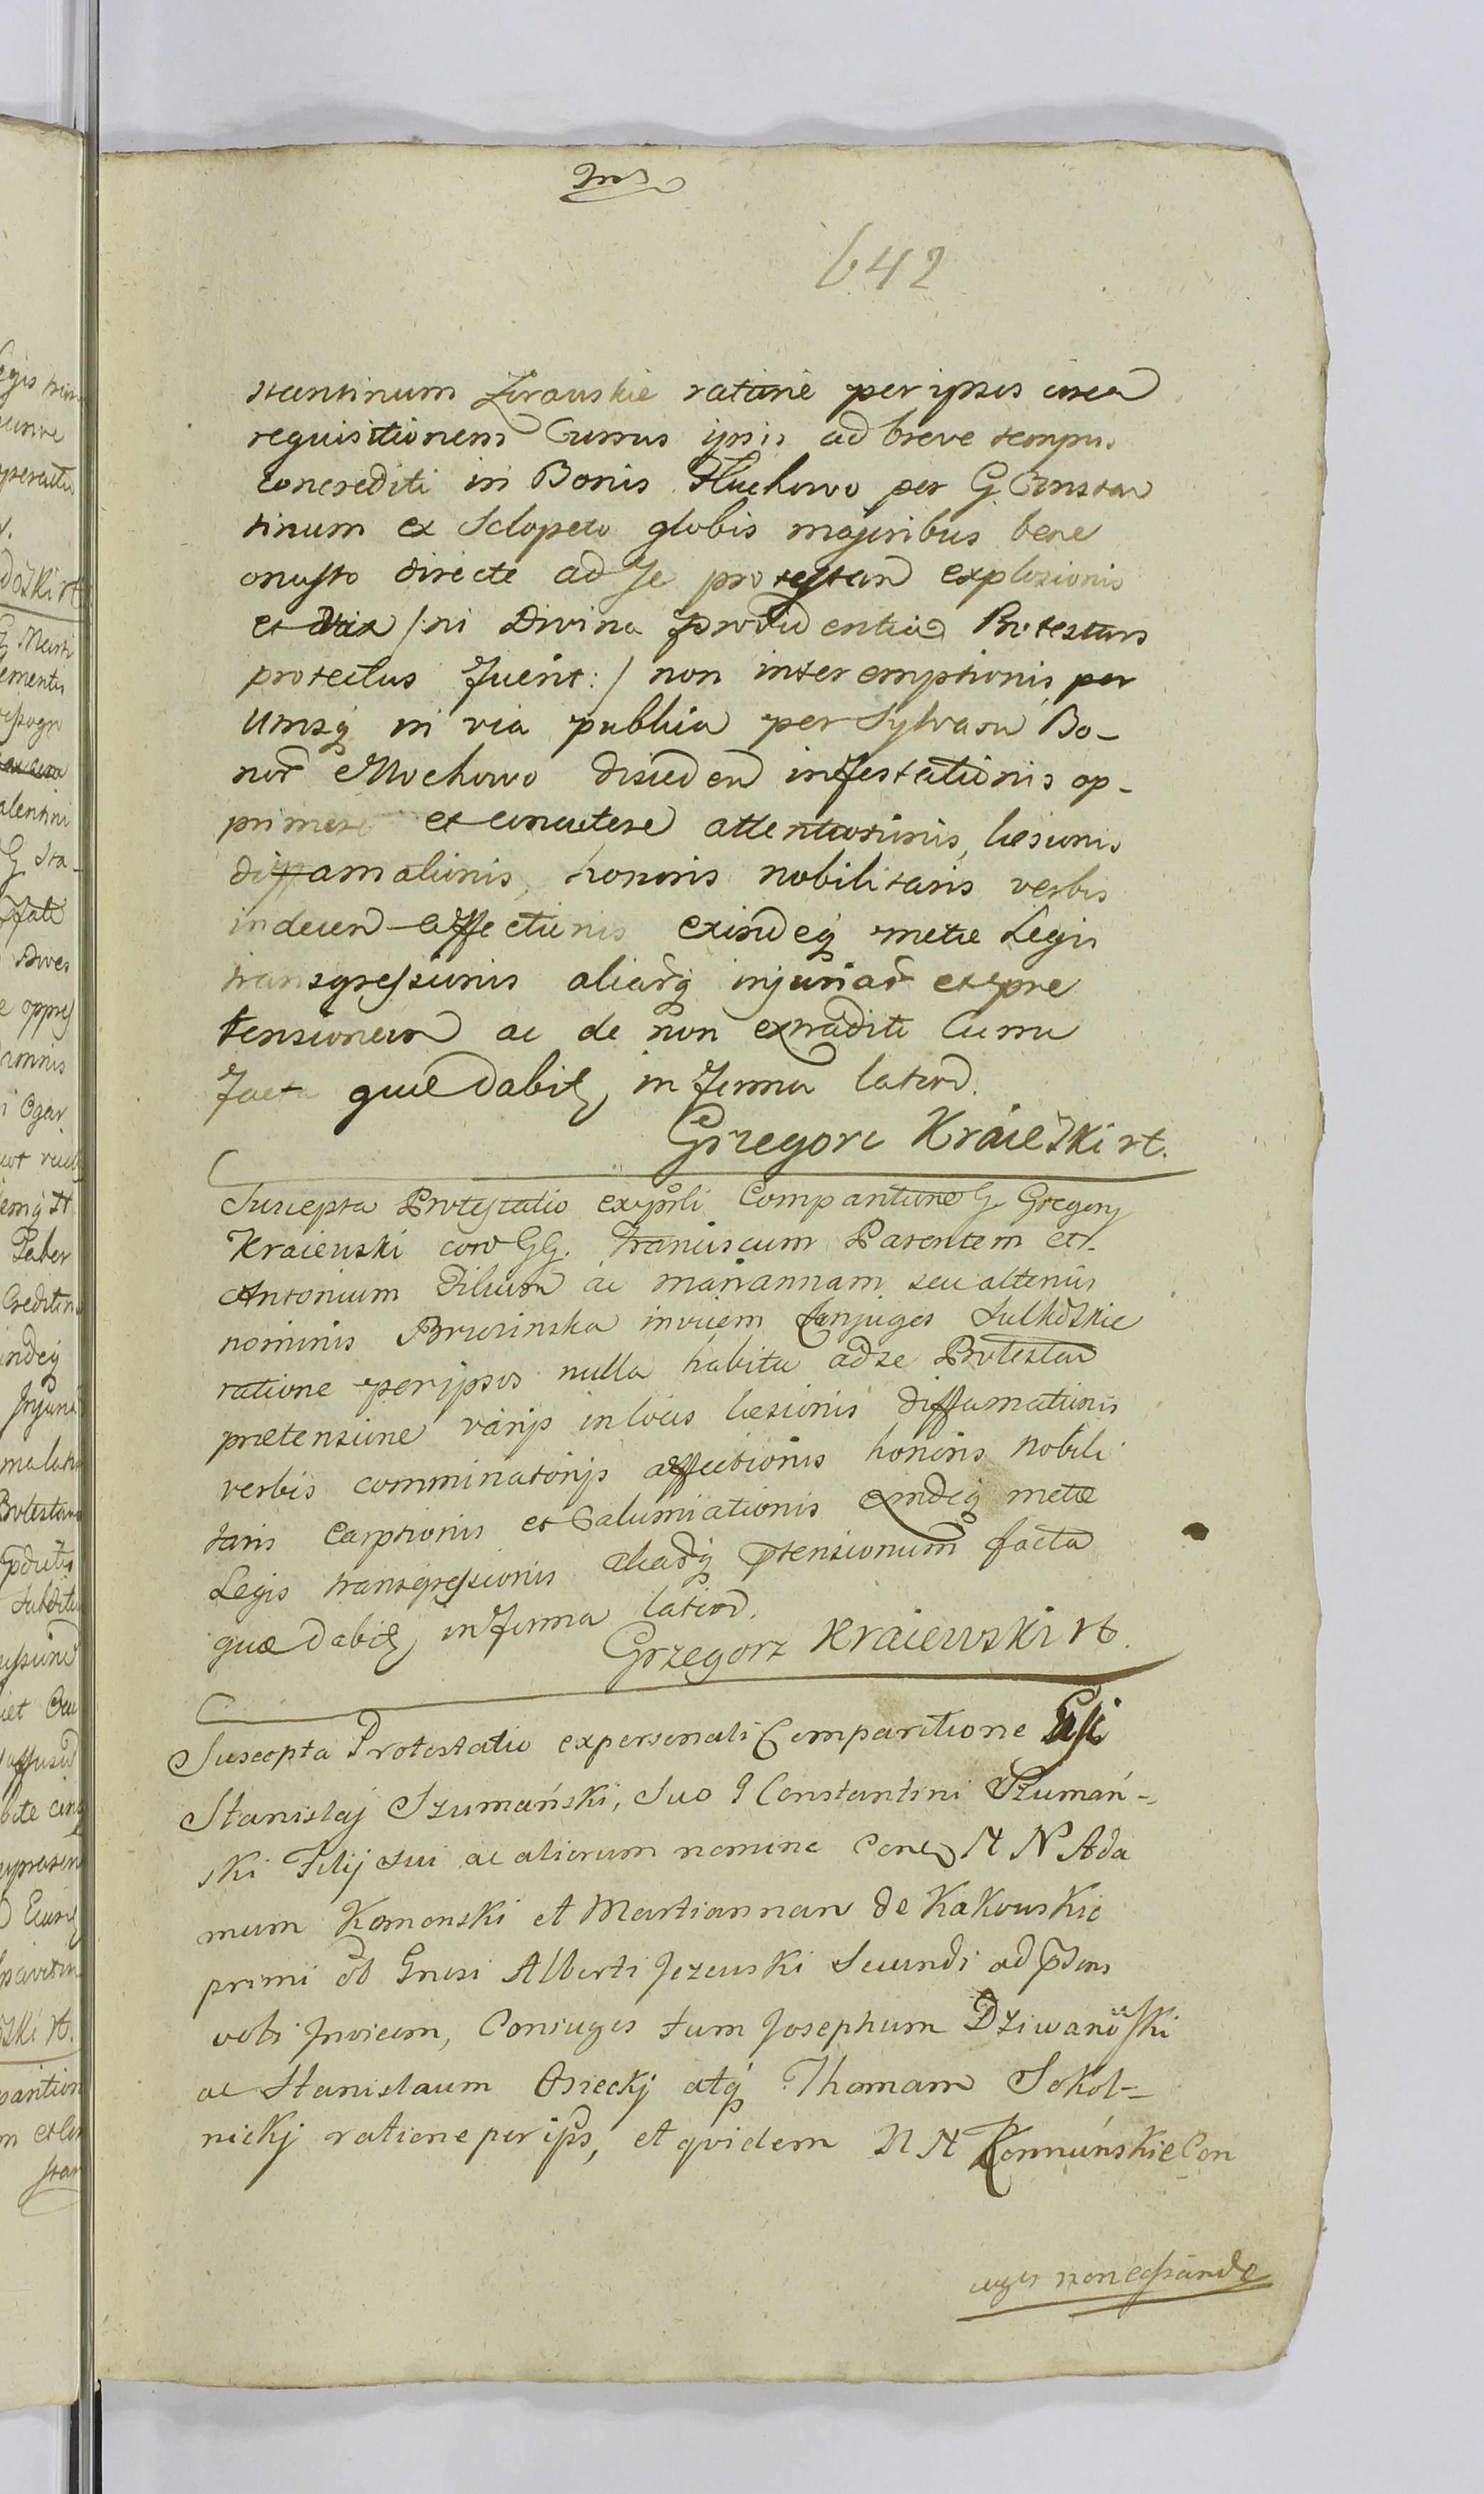 642
stantinum Zurawskie ratione per ipsos circa
requisitionem Currus ipsis ad breve tempus
concrediti in Bonis Kluchowo per G. Constan
tinum ex Sclopeto globis majoribus bene
onusto directe ad se protestan explosionis
et vix /: ni Divina providentia Protestans
protectus fuerit :/ non interemptionis per
Umsq in via publica per Sylvam Bo-
nor Mochowo disceden infestationis op-
primere et concutere attentationis, læsionis
diffamationis, honoris nobilitaris verbis
indecen affectionis exindeq metæ Legis
transgressionis aliarq injuriar et præ
tensionem ac de non extraditi Curru
facta quæ dabit, in forma latiori.
Grzegorz Kraiewski rt.
Suscepta Protestatio ex psli Comparitione G. Gregorij
Kraiewski con GG. Franciscum Parentem et
Antonium Filium ac Mariannam seu alterius
nominis Bruzinska invicem Conjuges Sulkowskie
ratione per ipsos nulla habita ad se Protestan
prætensione varijs in locis læsionis diffamationis
verbis comminatorijs affectionis honoris nobili
taris carptionis et Calumniationis exindeq metæ
Legis transgressionis aliarq ptensionum facta
quæ dabit, in forma latiori.
Grzegorz Kraiewski rt.
Suscepta Protestatio ex personali Comparitione
Stanislaj Szumański, suo G Constantini Szumań-
ski Filij sui ac aliorum nomine Contra N N Ada
mum Komonski et Martiannam de Kakowskie
primi ob Gnesi Alberti Jezewski Secundi ad psens
voti Invicem, Coniuges tum Josephum Dziwanowski
ac Stanislaum Osieckj atq Thomam Sokol-
nickj ratione per ipsos, et quidem N N Komuńskie Con
iuges non